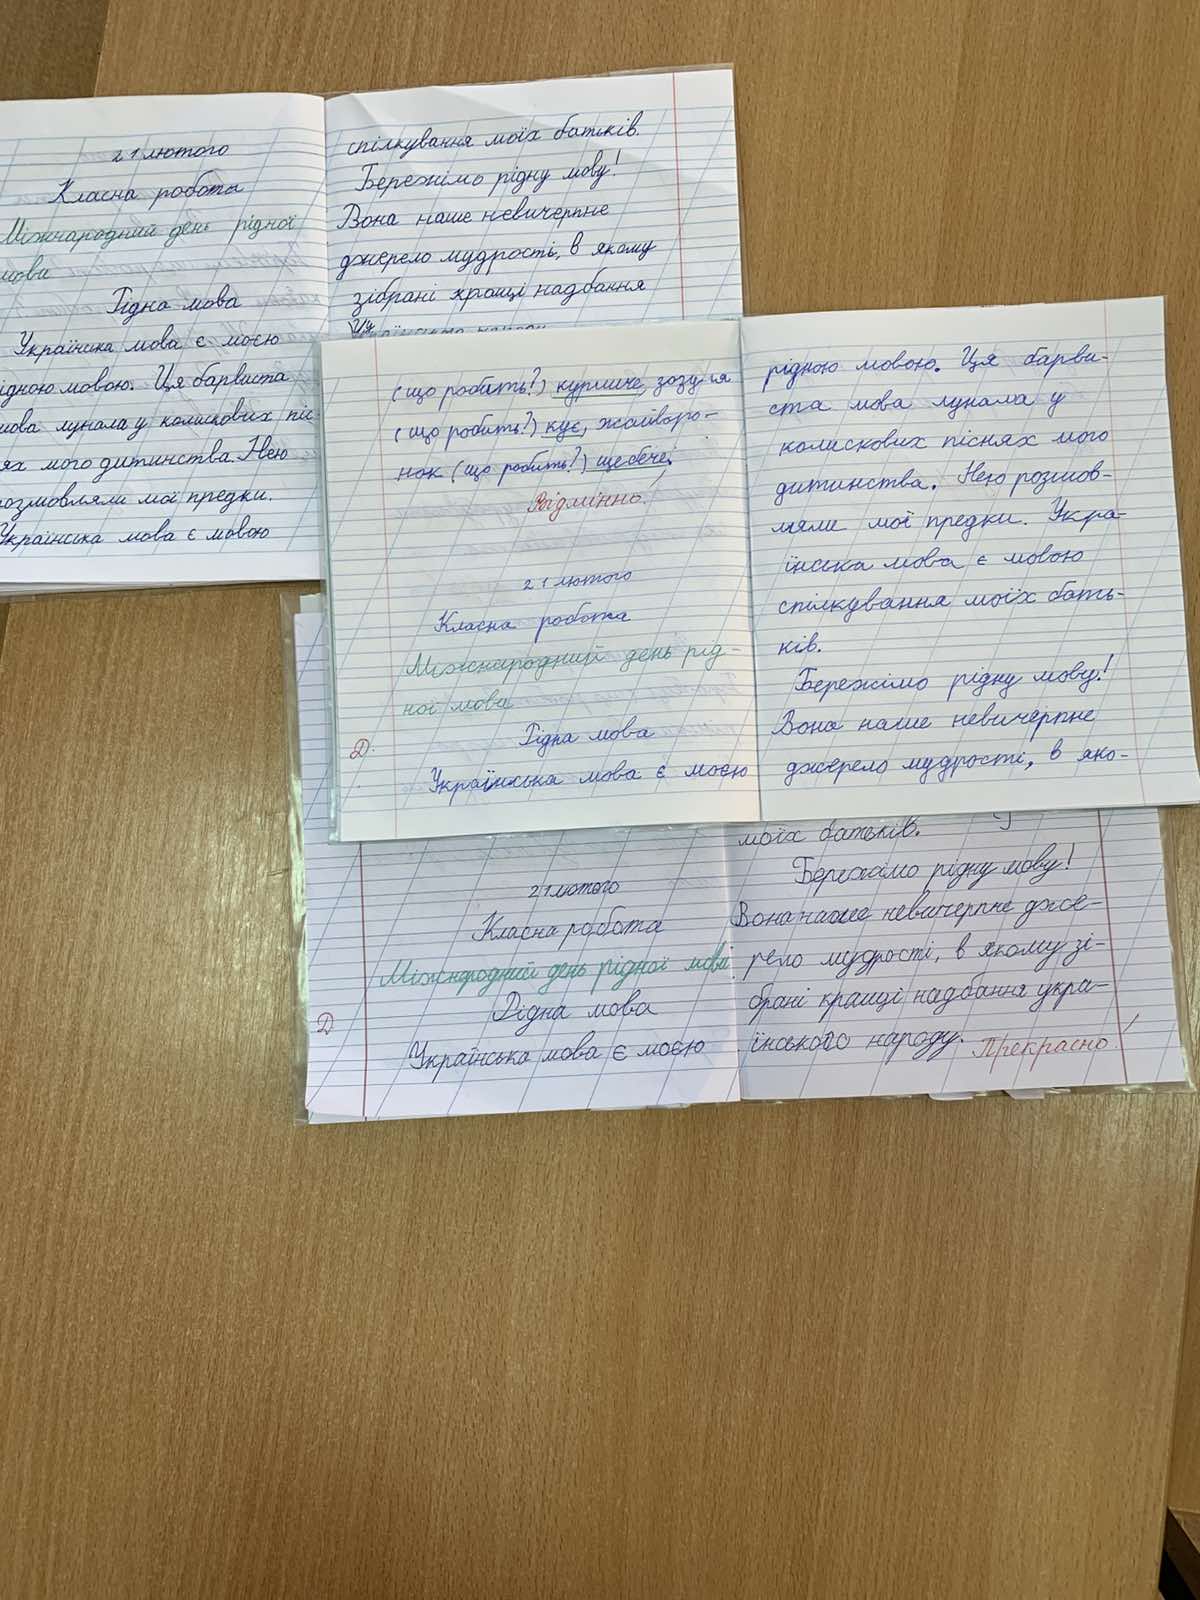 21 лютого
Класна робота
Міжнародний день рідної
мови
Рідна мова
Українська мова є моєю
ідною мовою. Ця барвиста
мова лунала у колискових піс
ях мого дитинства. Нею
розмовляли мої предки.
Українська мова є мовою
спілкування моїх батьків.
Бережімо рідну мову!
Вона наше невичерпне
джерело мудрості, в якому
зібрані кращі надбання
українського народу
(що робить?) курличе, зозуля
(що робить?) кує, жайворо-
нок (що робить?) щебече.
Відмінно!
21 лютого
Класна робота
Міжнародний день рід-
ної мови
Д.
Рідна мова
Українська мова є моєю
рідною мовою. Ця барви-
ста мова лунала у
колискових піснях мого
дитинства. Нею розмов-
ляли мої предки. Укра-
їнська мова є мовою
спілкування моїх бать-
ків.
Бережімо рідну мову!
Вона наше невичерпне
джерело мудрості, в яко-
21 лютого
Класна робота
Міжнародний день рідної мови
Рідна мова
Д
Українська мова є моєю
моїх батьків.
Бережімо рідну мову!
Вона наше невичерпне дже-
рело мудрості, в якому зі-
брані кращі надбання укра-
їнського народу.
Прекрасно!